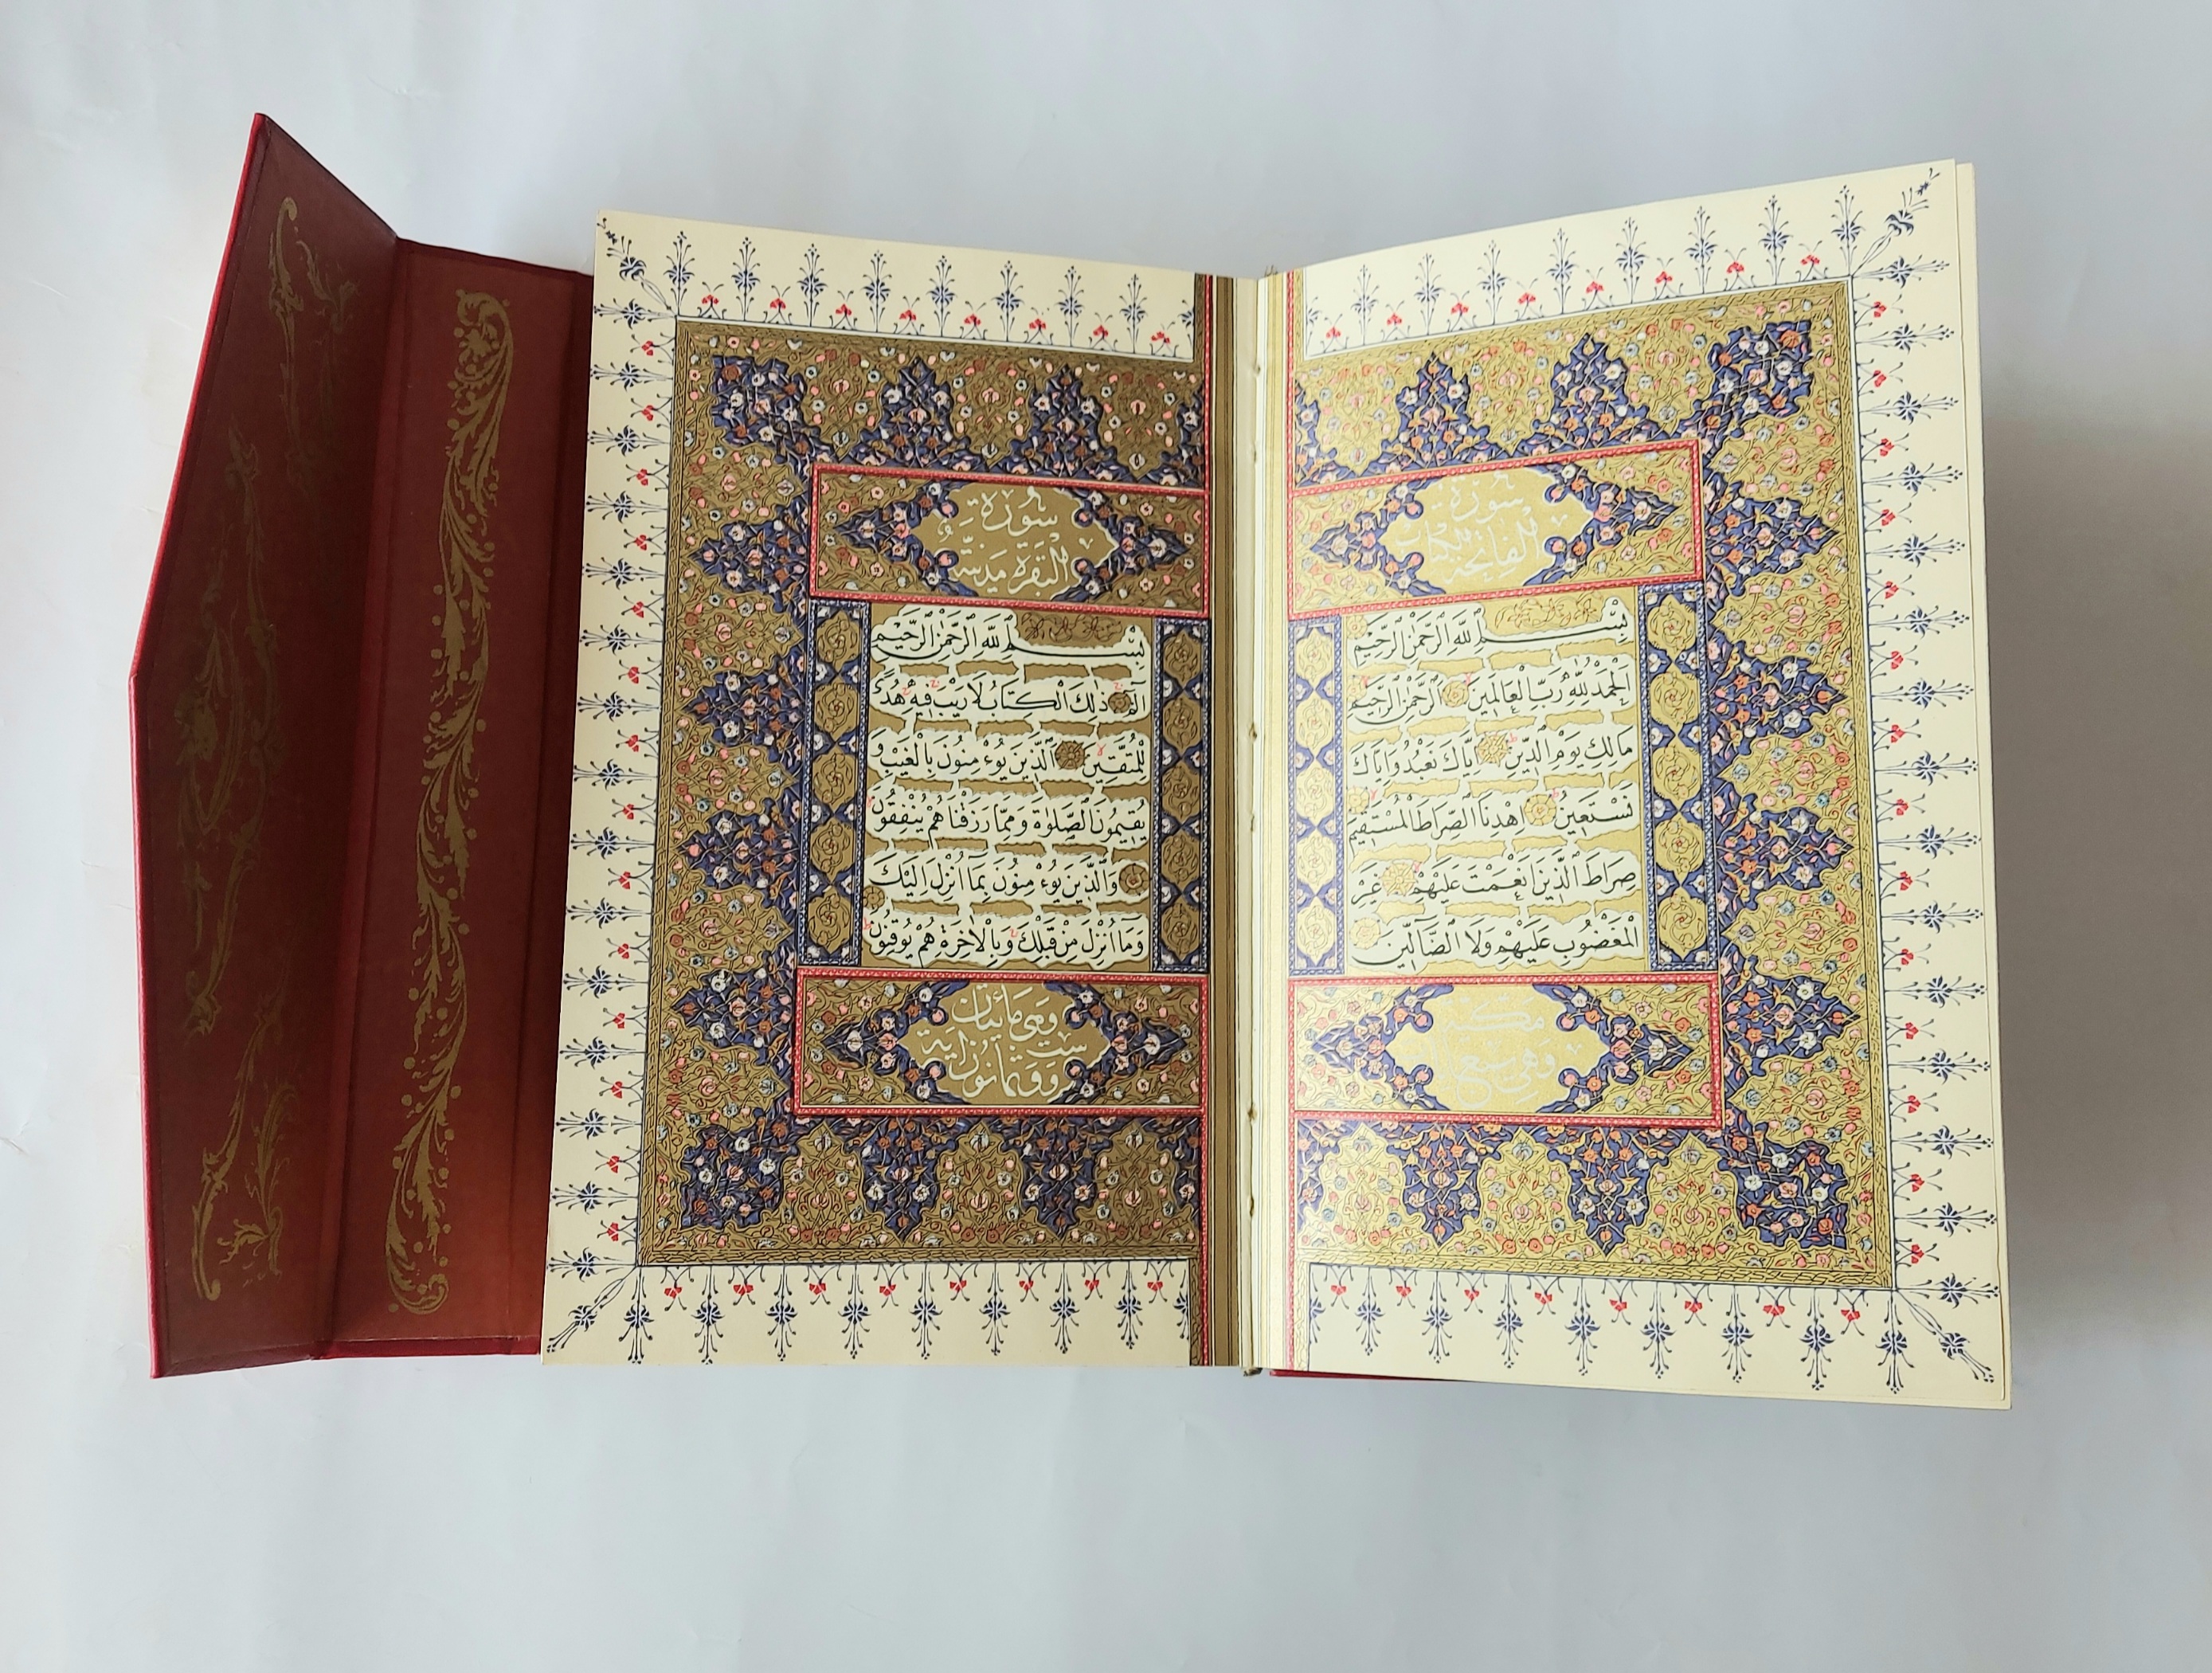 سورة
الفاتحة الكتاب
بِسْمِ ٱللّٰهِ ٱلرَّحْمٰنِ ٱلرَّحِيْمِ
اَلْحَمْدُ لِلّٰهِ رَبِّ الْعَالَمِينَ اَلرَّحْمٰنِ الرَّحِيْمِ
مَالِكِ يَوْمِ الدِّينِ اِيَّاكَ نَعْبُدُ وَاِيَّاكَ
نَسْتَعِينُ اِهْدِنَا الصِّرَاطَ الْمُسْتَقِيمَ
صِرَاطَ الَّذِينَ اَنْعَمْتَ عَلَيْهِمْ غَيْرِ
الْمَغْضُوبِ عَلَيْهِمْ وَلَا الضَّآلِّينَ
مكية
وهي سبع
سورة
البقرة مدنية
بِسْمِ ٱللّٰهِ ٱلرَّحْمٰنِ ٱلرَّحِيْمِ
الٓمٓ ذٰلِكَ الْكِتَابُ لَا رَيْبَ فِيهِ هُدًى
لِلْمُتَّقِينَ اَلَّذِينَ يُؤْمِنُونَ بِالْغَيْبِ وَ
يُقِيمُونَ الصَّلٰوةَ وَمِمَّا رَزَقْنَاهُمْ يُنْفِقُونَ
وَالَّذِينَ يُؤْمِنُونَ بِمَآ اُنْزِلَ اِلَيْكَ
وَمَآ اُنْزِلَ مِنْ قَبْلِكَ وَبِالْاٰخِرَةِ هُمْ يُوقِنُونَ
وهي مائتان
وست وثمانون اية